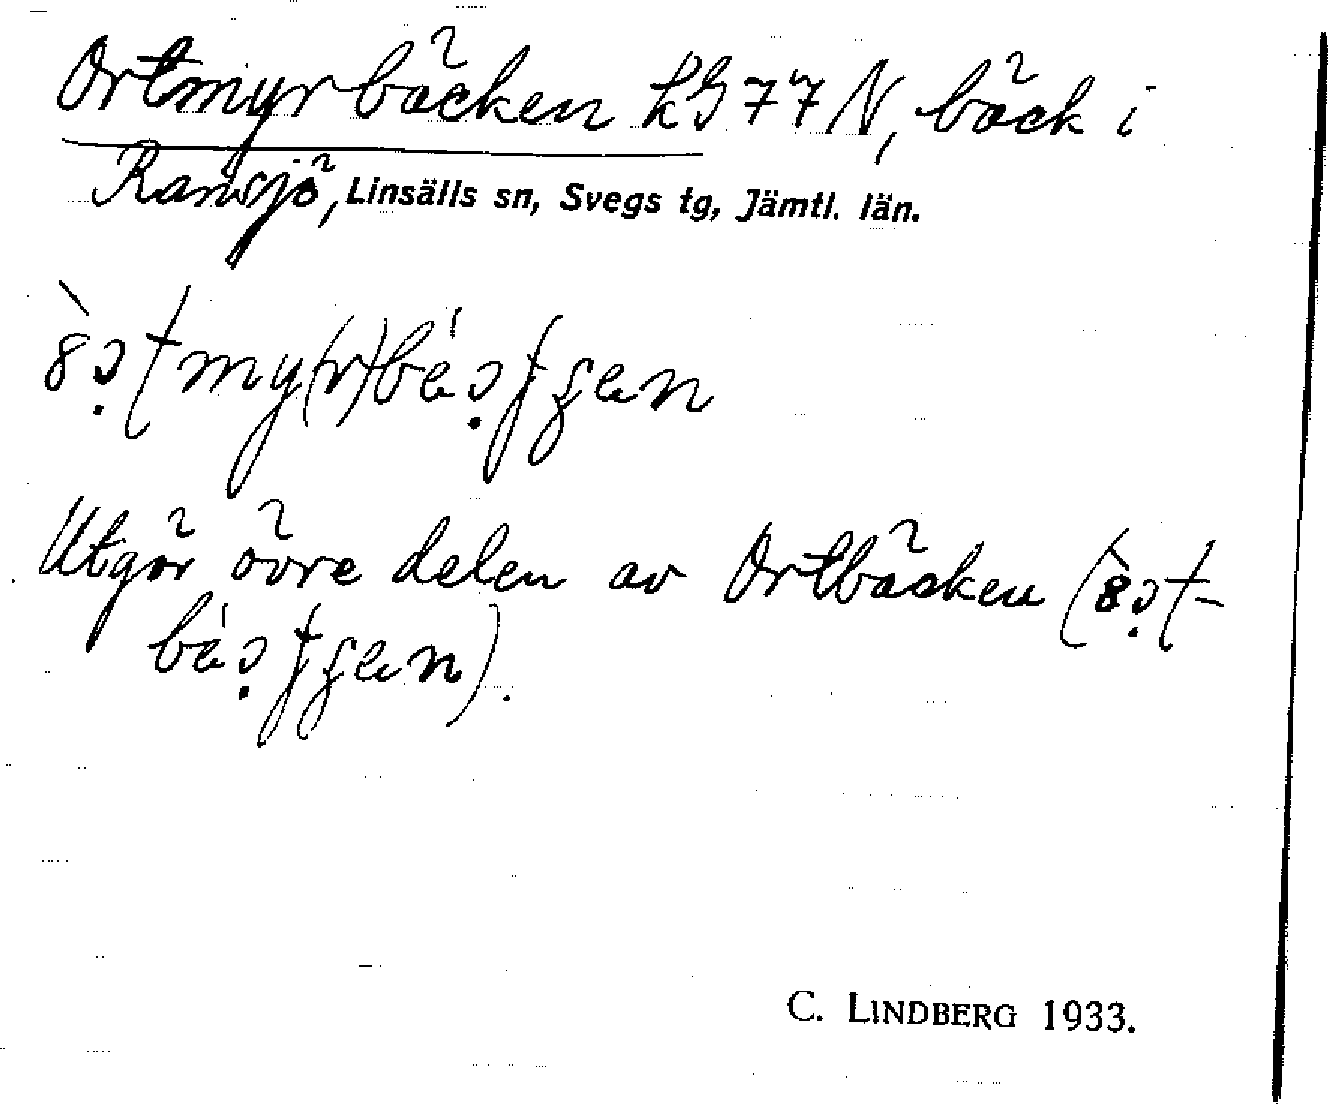 Ortmyrbäcken LG 77 N, bäck i
Ransjö, Linsälls sn, Svegs tg, Jämtl. län.
Utgör övre delen av Ortbäcken
C. LINDBERG 1933.